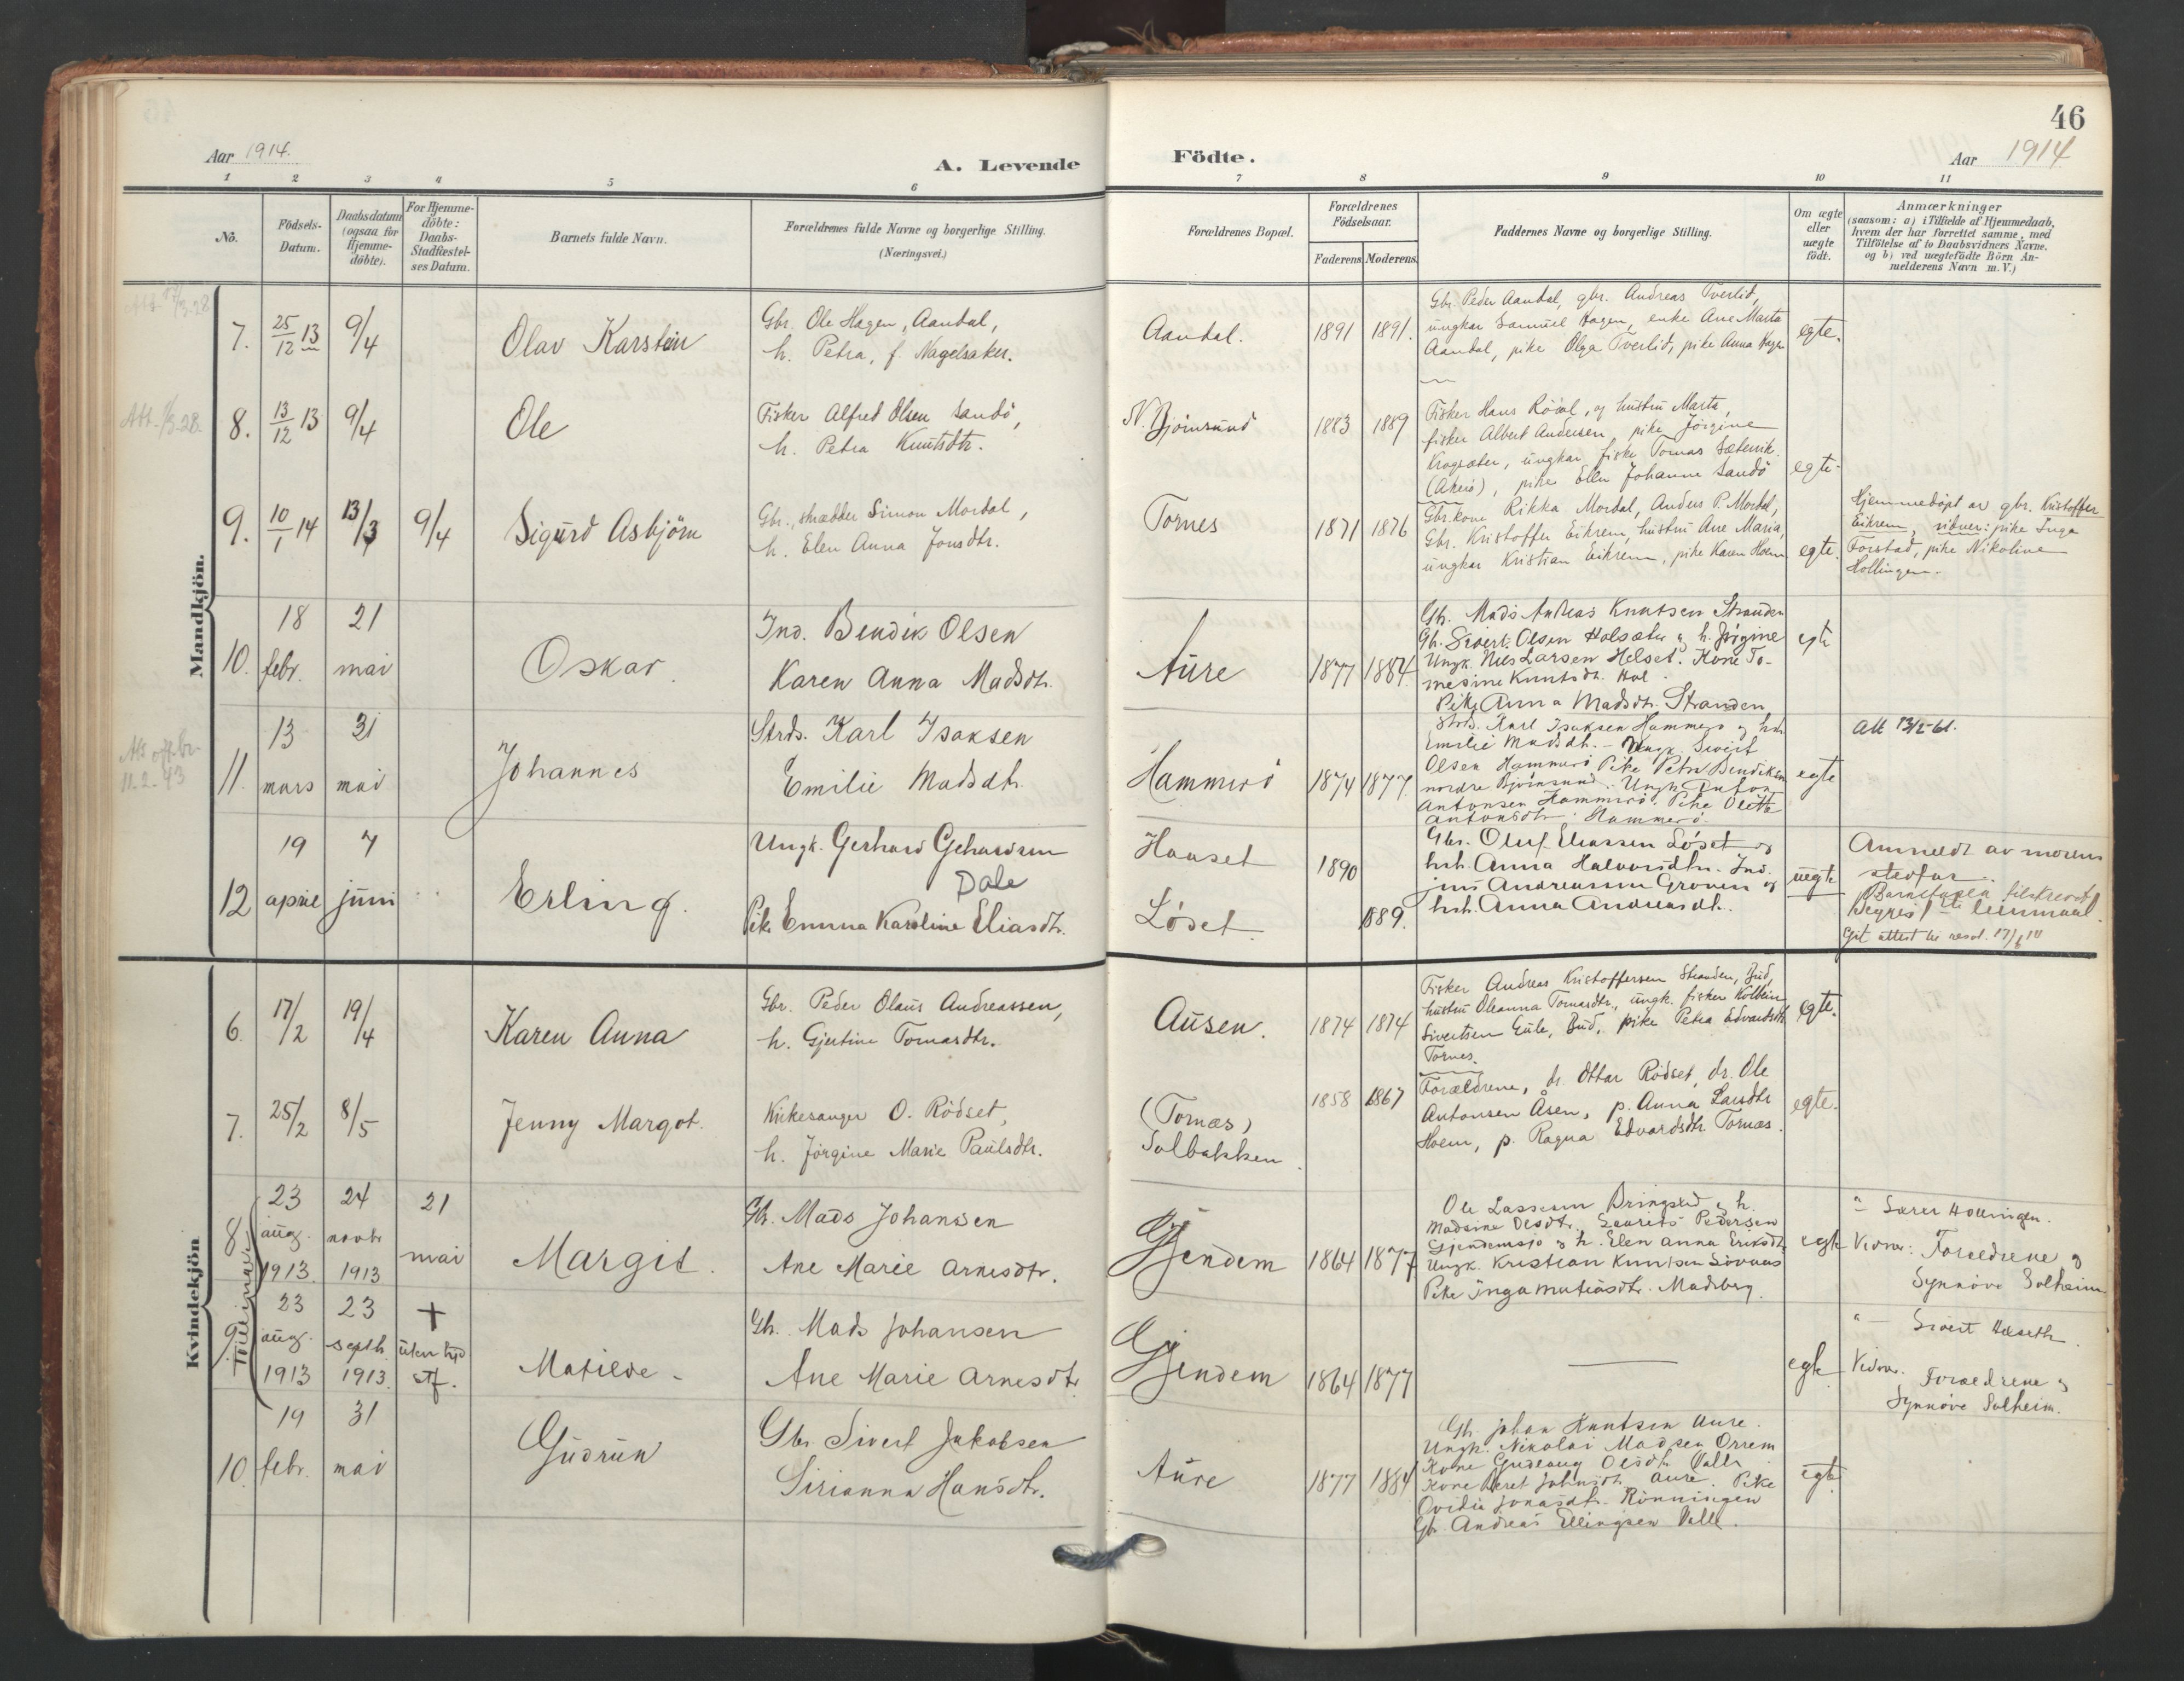 46
Aar 1914.
A. Levende
Födte.
Aar 1914
1 2 3 4 5 6 7 8 9 10 11
No.
Födsels-
Datum.
Daabsdatum
(ogsaa for
Hjemme-
döbte).
For Hjemme-
döbte:
Daabs-
Stadfæstel-
ses Datum.
Barnets fulde Navn.
Forældrenes fulde Navne og borgerlige Stilling.
(Næringsvei.)
Forældrenes Bopæl.
Forældrenes
Födselsaar.
Faderens
Moderens.
Faddernes Navne og borgerlige Stilling.
Om ægte
eller
uægte
födt.
Anmærkninger
(saasom: a) i Tilfælde af Hjemmedaab,
hvem der har forrettet samme, med
Tilföielse af to Daabsvidners Navne.
og b) ved uægtefödte Börn An-
melderens Navn m. V.)
Mandkjön.
7. 25/12 13 9/4
Olav Karstein
Gbr. Ole Hagen, Aandal,
h. Petra, f. Nagelsaker.
Aandal. 1891 1891.
Gbr. Peder Aandal, gbr. Andreas Tverlid,
ungkar Samuel Hagen, enke Ane Marta
Aandal, pike Olga Tverlid, pike Anna Hagen
egte.
8. 13/12 13 9/4
Ole
Fisker Alfred Olsen Sandö,
h. Petra Knutsdtr.
N. Bjørnsund 1883 1889
Fisker Hans Röval, og hustru Marta,
fisker Albert Andersen, pike Jörgine
Kragsæter, ungkar fisker Tomas Sætervik
(Akerö), pike Elen Johanne Sandö
egte.
9. 10/1 14 13/3 9/4
Sigurd Asbjörn
Gbr., skrædder Simon Mordal,
h. Elen Anna Jonsdtr.
Tornes 1871 1876
Gbr.kone Rikka Mordal, Anders P. Mordal,
Gbr. Kristoffer Eikrem, hustru Ane Maria,
ungkar Kristian Eikrem, pike Karen Hoem
egte.
Hjemmedöpt av gbr. Kristoffer
Eikrem, vidner: pike Inga
Forstad, pike Nikoline
Hollingen.
10. 18 febr. 21 mai
Oskar.
Ind. Bendik Olsen
Karen Anna Madsdtr.
Aure 1877 1884.
Gb. Mads Andreas Knutsen Stranden
Gb. Sivert Olsen Holsæter og h. Jörgine
Ungk. Nils Larsen Helset. Kone To-
mesine Knutsdtr. Hol.
Pike Anna Madsdtr. Stranden
egte
11. 13 mars 31 mai
Johannes
Strds. Karl Isaksen
Emilie Madsdtr.
Hammerö 1874 1877
Strds. Karl Isaksen Hammerö og hst.
Emilie Madsdtr. - Ungk. Sivert
Olsen Hammerö Pike Petra Bendiksen
nordre Björnsund. Ungk. Anton
Antonsen Hammerö. Pike Oletta
Antonsdtr. Hammerö.
egte
Att 13/2-61.
12 19 april 7 juni
Erling.
Ungk. Gerhard Gehardsen
Dale
Pike Emma Karoline Eliasdtr.
Hauset
Løset.
1890
1889.
Gbr. Oluf Eliassen Løset og
hst. Anna Halvorsdtr. Ind.
Andreassen Groven og
hst. Anna Andreasdt.
uegte
Anmeldt av morens
stedfar.
Kvindekjön
6. 17/2 19/4
Karen Anna
Gbr. Peder Olaus Andreassen,
h. Gjertine Tomasdtr.
Ausen. 1874 1874
Fisker Andreas Kristoffersen Stranden, Bud,
hustru Oleanna Tomasdtr., ungk. fisker Kolbein
Sivertsen Eide, Bud, pike Petra Edvardsdtr
Tornes.
egte.
7. 25/2 8/5
Jenny Margot.
Kirkesanger O. Rödset,
h. Jörgine Marie Paulsdtr.
(Tornæs)
Solbakken.
1858 1867
Forældrene, dr. Ottar Rödset, dr. Ole
Antonsen Åsen, p. Anna Larsdtr
Hoem, p. Ragna Edvardsdtr Tornæs.
egte.
Tvillinger
8 23 aug. 1913. 24 novbr 1913 21 mai
Margit.
Gb. Mads Johansen
Ane Marie Arnesdtr.
Gjendem 1864 1877
Ole Lassesen Bringsled og h.
Madsine Olsdtr. Laurits Pedersen
Gjendemsjø og h. Elen Anna Eriksdtr.
Ungk. Kristian Knutsen
Pike Inga Matiasdtr. Madsberg.
egte
Hollingen.
Vidner: Forældrene og
Synnöve Solheim
9. 23 aug. 1913 23 septbr. 1913. + uten höd stf.
Matilde.
Gb. Mads Johansen
Ane Marie Arnesdtr
Gjendem 1864 1877
egte
Sivert Hæseth.
Vidner. Forældrene og
Synnöve Solheim.
10. 19 febr. 31 mai
Gudrun
Gbr. Sivert Jakobsen
Sirianna Hansdtr.
Aure 1877 1884
Gb. Johan Knutsen Aure.
Ungk. Nikolai Madsen Orrem
Kone Gudlaug Olsdtr Valle
Kone Beret Johnsdtr Aure. Pike
Ovidia Jonasdtr. Rönningen
Gb. Andreas Ellingsen Valle.
egte